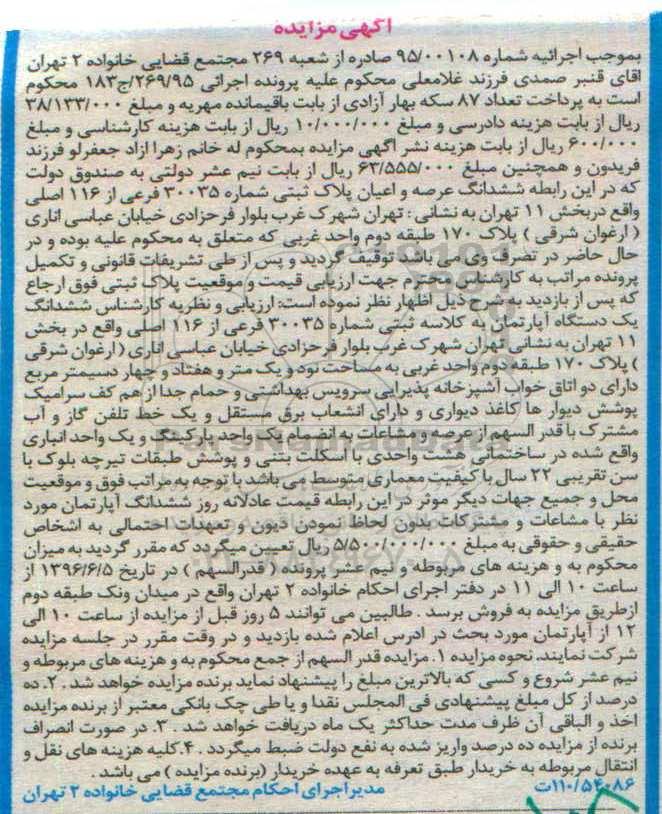 آگهی مزایده
بموجب اجرائیه شماره ۹۵/۰۰۱۰۸ صادره از شعبه ۲۶۹ مجتمع قضایی خانواده ۲ تهران
آقای قنبر صمدی فرزند غلامعلی محکوم علیه پرونده اجرائی ۲۶۹/۹۵/ج۱۸۳ محکوم
است به پرداخت تعداد ۸۷ سکه بهار آزادی از بابت باقیمانده مهریه و مبلغ ۳۸/۱۳۳/۰۰۰
ریال از بابت هزینه دادرسی و مبلغ ۱۰/۰۰۰/۰۰۰ ریال از بابت هزینه کارشناسی و مبلغ
۶۰۰/۰۰۰ ریال از بابت هزینه نشر آگهی مزایده بمحکوم له خانم زهرا آزاد جعفرلو فرزند
فریدون و همچنین مبلغ ۶۳/۵۵۵/۰۰۰ ریال از بابت نیم عشر دولتی به صندوق دولت
که در این رابطه ششدانگ عرصه و اعیان پلاک ثبتی شماره ۳۰۰۳۵ فرعی از ۱۱۶ اصلی
واقع دربخش ۱۱ تهران به نشانی : تهران شهرک غرب بلوار فرحزادی خیابان عباسی اناری
( ارغوان شرقی ) پلاک ۱۷۰ طبقه دوم واحد غربی که متعلق به محکوم علیه بوده و در
حال حاضر در تصرف وی می باشد توقیف گردید و پس از طی تشریفات قانونی و تکمیل
پرونده مراتب به کارشناس محترم جهت ارزیابی قیمت و موقعیت پلاک ثبتی فوق ارجاع
که پس از بازدید به شرح ذیل اظهار نظر نموده است: ارزیابی و نظریه کارشناس ششدانگ
یک دستگاه آپارتمان به کلاسه ثبتی شماره ۳۰۰۳۵ فرعی از ۱۱۶ اصلی واقع در بخش
۱۱ تهران به نشانی تهران شهرک غرب بلوار فرحزادی خیابان عباسی اناری ( ارغوان شرقی
) پلاک ۱۷۰ طبقه دوم واحد غربی به مساحت نود و یک متر و هفتاد و چهار دسیمتر مربع
دارای دو اتاق خواب آشپزخانه پذیرایی سرویس بهداشتی و حمام جدا از هم کف سرامیک
پوشش دیوار ها کاغذ دیواری و دارای انشعاب برق مستقل و یک خط تلفن گاز و آب
مشترک با قدر السهم از عرصه و مشاعات به انضمام یک واحد پارکینگ و یک واحد انباری
واقع شده در ساختمانی هشت واحدی با اسکلت بتنی و پوشش طبقات تیرچه بلوک با
سن تقریبی ۲۲ سال با کیفیت معماری متوسط می باشد با توجه به مراتب فوق و موقعیت
محل و جمیع جهات دیگر موثر در این رابطه قیمت عادلانه روز ششدانگ آپارتمان مورد
نظر با مشاعات و مشترکات بدون لحاظ نمودن دیون و تعهدات احتمالی به اشخاص
حقیقی و حقوقی به مبلغ ۵/۵۰۰/۰۰۰/۰۰۰ ریال تعیین میگردد که مقرر گردید به میزان
محکوم به و هزینه های مربوطه و نیم عشر پرونده ( قدرالسهم ) در تاریخ ۱۳۹۶/۶/۵ از
ساعت ۱۰ الی ۱۱ در دفتر اجرای احکام خانواده ۲ تهران واقع در میدان ونک طبقه دوم
ازطریق مزایده به فروش برسد . طالبین می توانند ۵ روز قبل از مزایده از ساعت ۱۰ الی
۱۲ از آپارتمان مورد بحث در آدرس اعلام شده بازدید و در وقت مقرر در جلسه مزایده
شرکت نمایند. نحوه مزایده ۱. مزایده قدر السهم از جمع محکوم به و هزینه های مربوطه و
نیم عشر شروع و کسی که بالاترین مبلغ را پیشنهاد نماید برنده مزایده خواهد شد . ۲. ده
درصد از کل مبلغ پیشنهادی فی المجلس نقدا و یا طی چک بانکی معتبر از برنده مزایده
اخذ و الباقی آن ظرف مدت حداکثر یک ماه دریافت خواهد شد . ۳. در صورت انصراف
برنده از مزایده ده درصد واریز شده به نفع دولت ضبط میگردد . ۴.کلیه هزینه های نقل و
انتقال مربوطه به خریدار طبق تعرفه به عهده خریدار (برنده مزایده ) می باشد .
۱۱۰/۵۴۰۸۶ت مدیر اجرای احکام مجتمع قضایی خانواده ۲ تهران